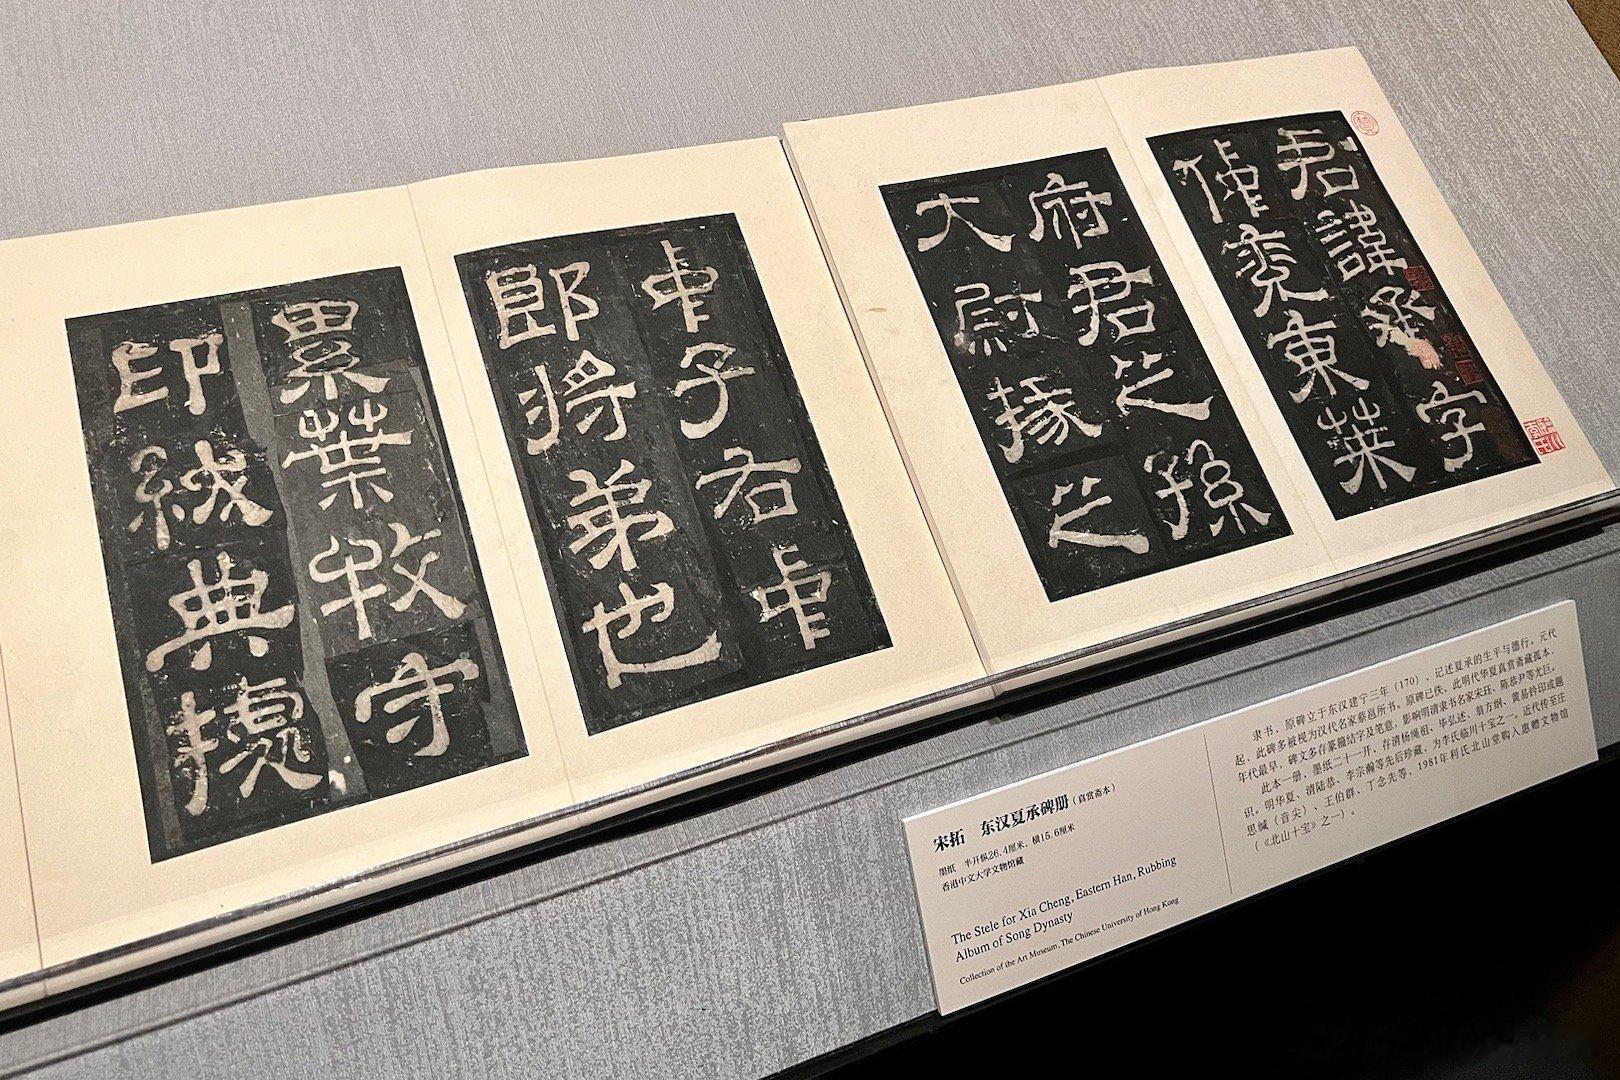 君諱承字
仲兖東萊
府君之孫
大尉掾之
中子右中
郎將弟也
累葉牧守
印紱典據
宋拓 东汉夏承碑册（真赏斋本）
墨纸 半开纵26.4厘米，横15.6厘米
香港中文大学文物馆藏
The Stele for Xia Cheng, Eastern Han, Rubbing
Album of Song Dynasty
Collection of the Art Museum, The Chinese University of Hong Kong
隶书。原碑立于东汉建宁三年（170），记述夏承的生平与德行。元代
起，此碑多被视为汉代名家蔡邕所书。原碑已佚，此明代华夏真赏斋藏孤本，
年代最早。碑文多存篆籀结字及笔意，影响明清隶书名家宋珏、陈恭尹等尤巨。
此本一册，墨纸二十一开，存清杨绳祖、毕弘述、翁方纲、黄易钤印或题
识。明华夏、清陆恭、李宗瀚等先后珍藏，为李氏临川十宝之一。近代传至庄
思缄（音尖）、王伯群、丁念先等，1981年利氏北山堂购入惠赠文物馆
（《北山十宝》之一）。